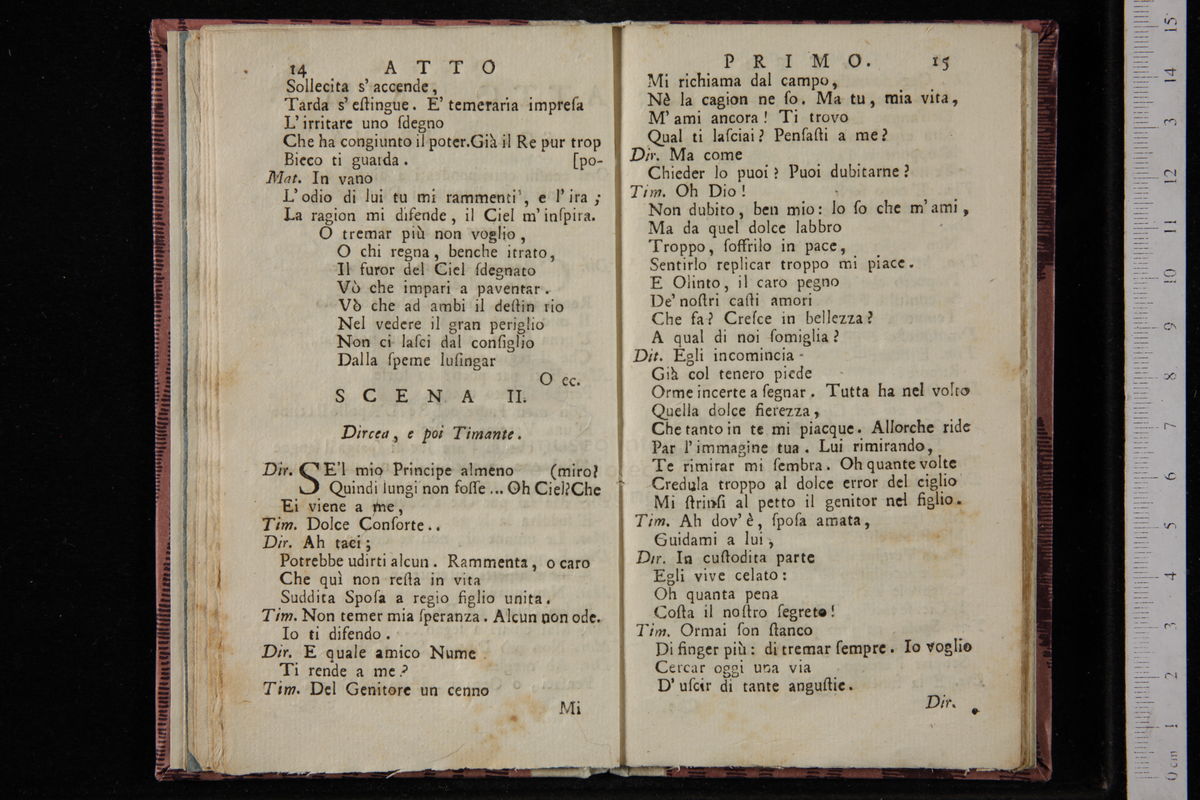 14 ATTO
Sollecita s' accende,
Tarda s' eſtingue. E' temeraria impreſa
L' irritare uno ſdegno
Che ha congiunto il poter. Già il Re pur trop
Bieco ti guarda. [po-
Mat. In vano
L' odio di lui tu mi rammenti, e l' ira;
La ragion mi difende, il Ciel m' inſpira.
O tremar più non voglio,
O chi regna, benche itrato,
Il furor del Ciel ſdegnato
Vò che impari a paventar.
Vò che ad ambi il deſtin rio
Nel vedere il gran periglio
Non ci laſci dal conſiglio
Dalla ſpeme luſingar
O ec.
SCENA II.
Dircea, e poi Timante.
Dir. SE'l mio Principe almeno (miro?
Quindi lungi non foſſe ... Oh Ciel? Che
Ei viene a me,
Tim. Dolce Conſorte..
Dir. Ah taci;
Potrebbe udirti alcun. Rammenta, o caro
Che quì non reſta in vita
Suddita Spoſa a regio figlio unita.
Tim. Non temer mia ſperanza. Alcun non ode.
Io ti difendo.
Dir. E quale amico Nume
Ti rende a me?
Tim. Del Genitore un cenno
Mi
PRIMO. 15
Mi richiama dal campo,
Nè la cagion ne ſo. Ma tu, mia vita,
M' ami ancora! Ti trovo
Qual ti laſciai? Penſaſti a me?
Dir. Ma come
Chieder lo puoi? Puoi dubitarne?
Tim. Oh Dio!
Non dubito, ben mio: lo ſo che m' ami,
Ma da quel dolce labbro
Troppo, ſoffrilo in pace,
Sentirlo replicar troppo mi piace.
E Olinto, il caro pegno
De' noſtri caſti amori
Che fa? Creſce in bellezza?
A qual di noi ſomiglia?
Dit. Egli incomincia
Già col tenero piede
Orme incerte a ſegnar. Tutta ha nel volto
Quella dolce fierezza,
Che tanto in te mi piacque. Allorche ride
Par l' immagine tua. Lui rimirando,
Te rimirar mi ſembra. Oh quante volte
Credula troppo al dolce error del ciglio
Mi ſtrinſi al petto il genitor nel figlio.
Tim. Ah dov' è, ſpoſa amata,
Guidami a lui,
Dir. In cuſtodita parte
Egli vive celato:
Oh quanta pena
Coſta il noſtro ſegreto!
Tim. Ormai ſon ſtanco
Di finger più: di tremar ſempre. Io voglio
Cercar oggi una via
D' uſcir di tante anguſtie.
Dir.
0 cm 1 2 3 4 5 6 7 8 9 10 11 12 13 14 15